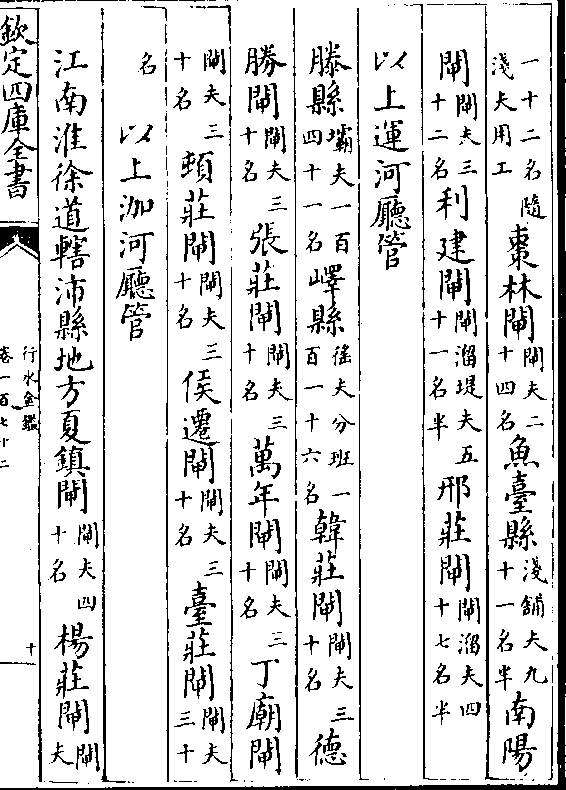 一十二名隨淺夫用工棗林閘閘夫二十四名魚臺縣淺舖夫九十一名半南陽
閘閘夫三十二名利建閘閘溜堤夫五十一名半邢莊閘閘溜夫四十七名半
以上運河廳管
滕縣壩夫一百四十一名嶧縣徭夫分班一百一十六名韓莊閘閘夫三十名德
勝閘閘夫三十名張莊閘閘夫三十名萬年閘閘夫三十名丁廟閘
閘夫三十名頓莊閘閘夫三十名侯遷閘閘夫三十名臺莊閘閘夫三十
名
以上泇河廳管
江南淮徐道轄沛縣地方夏鎮閘閘夫四十名楊莊閘閘夫
欽定四庫全書
行水金鑑
卷一百七十二
十